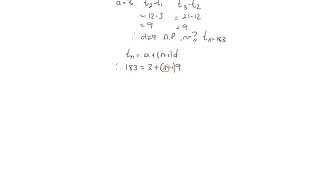 a=3 t₂-t₁ t₃-t₂
=12-3 =21-12
=9 =9
∴ d=9 A.P. n=? tn=183
tn = a+(n-1)d
∴ 183 = 3+(n-1)9